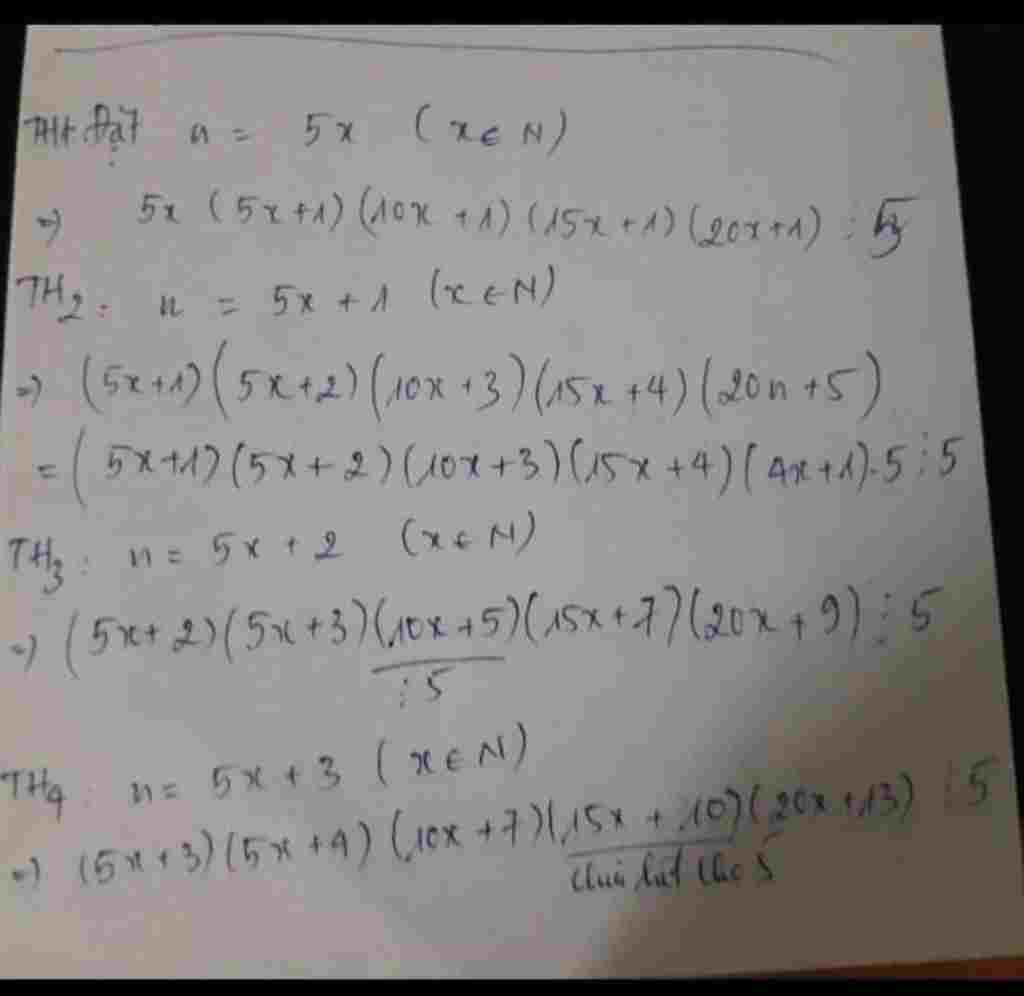 TH1: Đặt n = 5x (x ∈ N)
=) 5x (5x+1) (10x +1) (15x +1) (20x+1) ⋮ 5
TH2: n = 5x + 1 (x ∈ N)
=) (5x+1) (5x+2) (10x +3) (15x +4) (20n +5)
= ( 5x+1) (5x + 2) (10x+3) (15x +4) ( 4x+1).5 ⋮ 5
TH3: n = 5x + 2 (x ∈ N)
=) (5x+ 2) (5x +3) (10x +5) (15x +7) (20x + 9) ⋮ 5
⋮ 5
TH4: n = 5x + 3 ( x ∈ N)
=) (5x +3) (5x +4) (10x +7) (15x + 10) (20x +13) ⋮ 5
chia hết cho 5